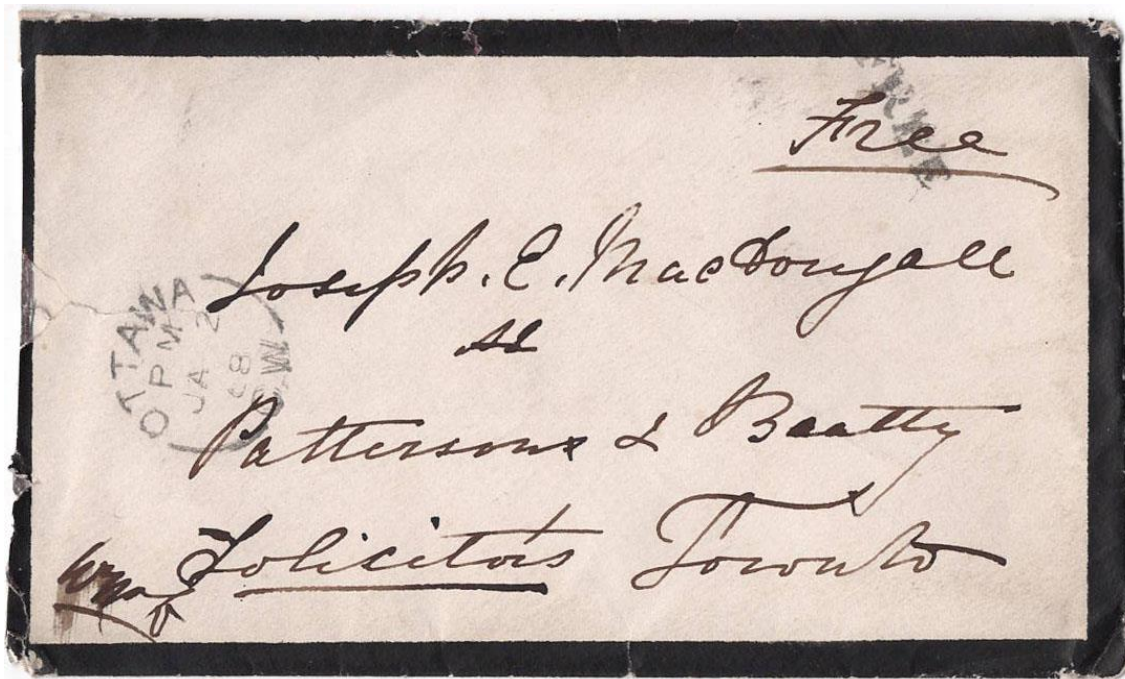 Free
Joseph. E. MacDougall
Pattersons & Beatty
Solicitors Toronto
OTTAWA
PM
JA 2
68
C.W